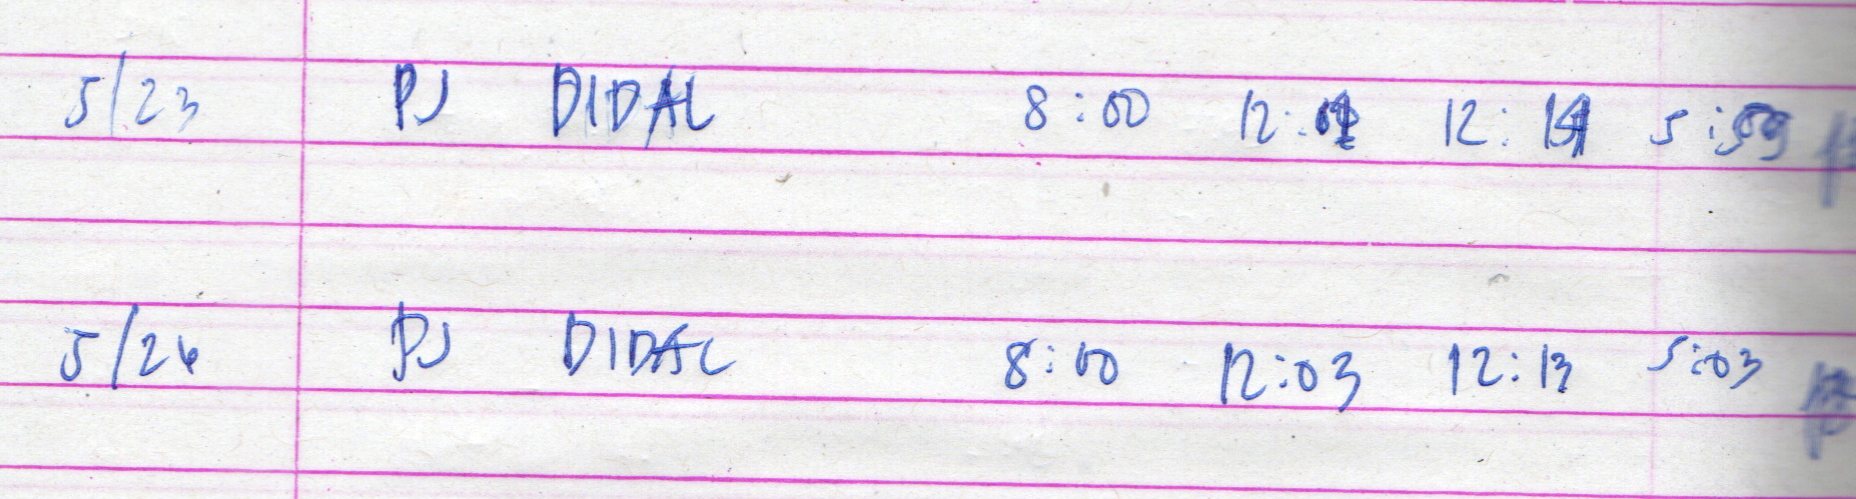 5/23 PJ DIDAL 8:00 12: 12:14 5:09
5/26 PJ DIDAL 8:00 12:03 12:13 5:03